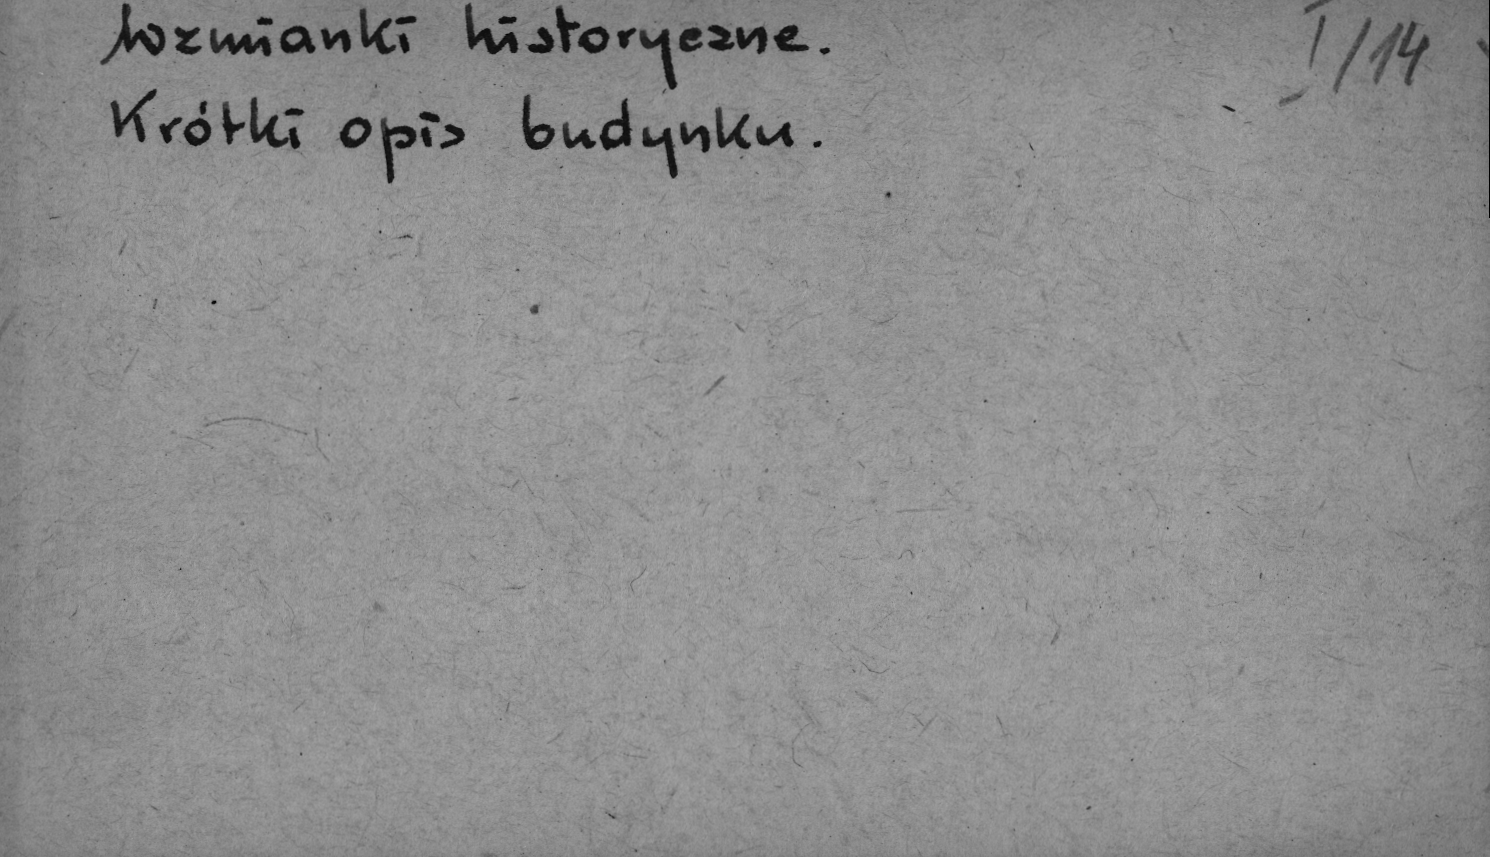 Wzmianki historyczne.
I/14
Krótki opis budynku.